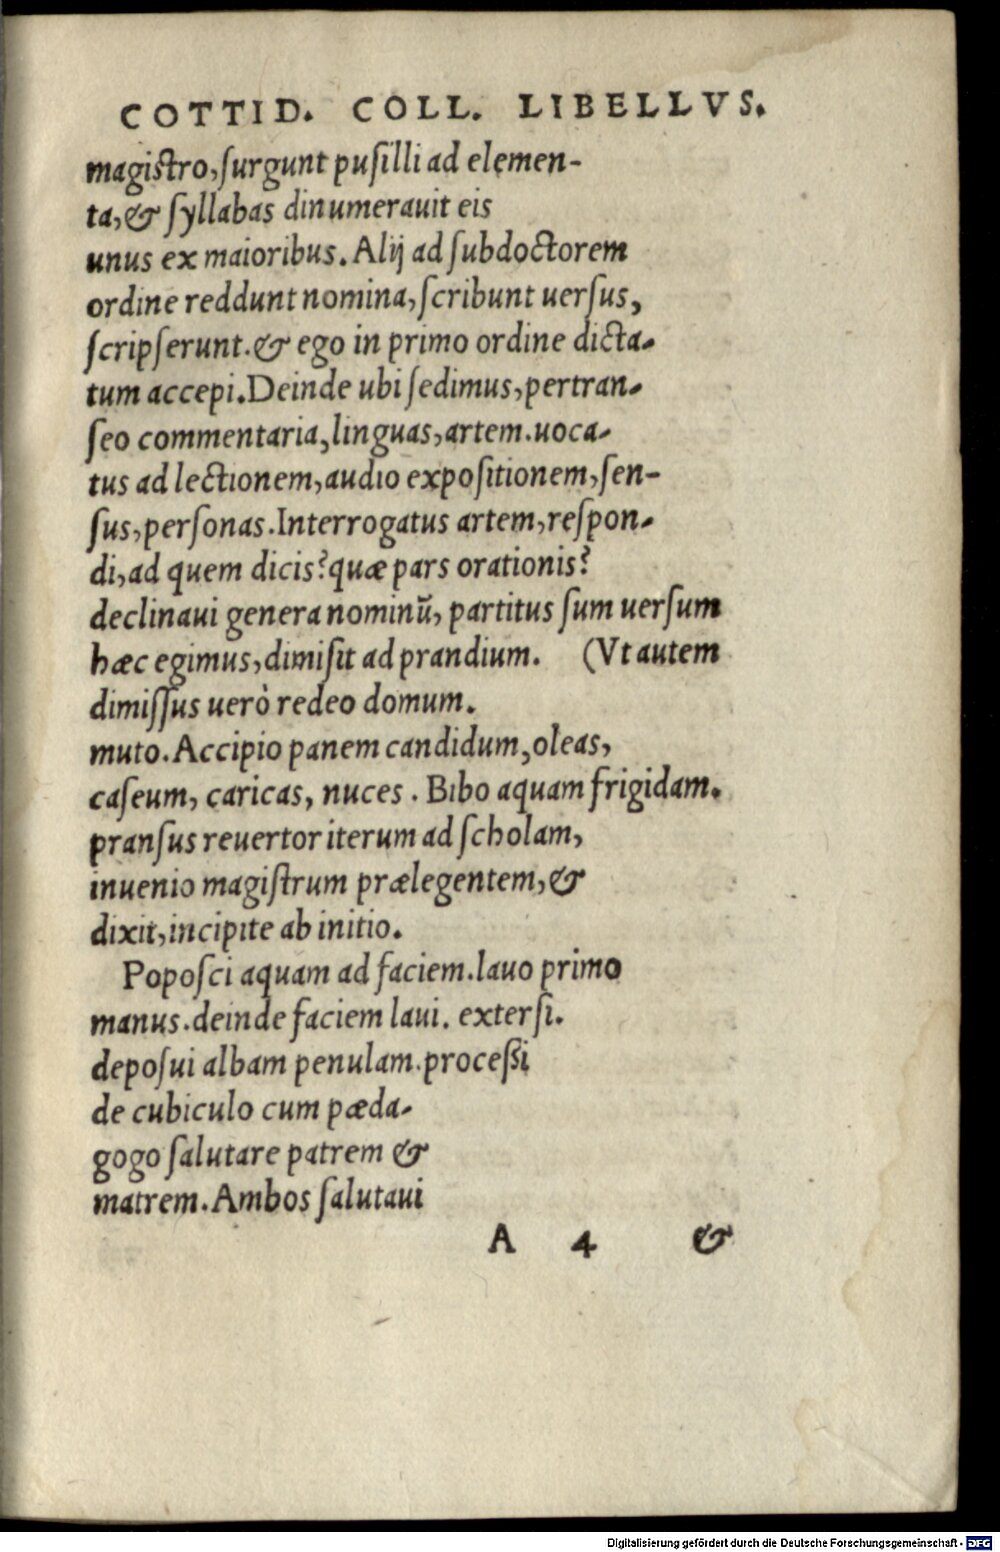 COTTID. COLL. LIBELLVS.
magistro, ſurgunt puſilli ad elemen-
ta, & ſyllabas dinumerauit eis
unus ex maioribus. Alij ad ſubdoctorem
ordine reddunt nomina, ſcribunt uerſus,
ſcripſerunt. & ego in primo ordine dicta-
tum accepi. Deinde ubi ſedimus, pertran-
ſeo commentaria, linguas, artem. uoca-
tus ad lectionem, audio expoſitionem, ſen-
ſus, perſonas. Interrogatus artem, reſpon-
di, ad quem dicis? quæ pars orationis?
declinaui genera nominū, partitus ſum uerſum
hæc egimus, dimiſit ad prandium. (Vt autem
dimiſſus uerò redeo domum.
muto. Accipio panem candidum, oleas,
caſeum, caricas, nuces. Bibo aquam frigidam.
pranſus reuertor iterum ad ſcholam,
inuenio magiſtrum prælegentem, &
dixit, incipite ab initio.
Popoſci aquam ad faciem. lauo primo
manus. deinde faciem laui. exterſi.
depoſui albam penulam. proceßi
de cubiculo cum pæda-
gogo ſalutare patrem &
matrem. Ambos ſalutaui
A 4 &
Digitalisierung gefördert durch die Deutsche Forschungsgemeinschaft - DFG